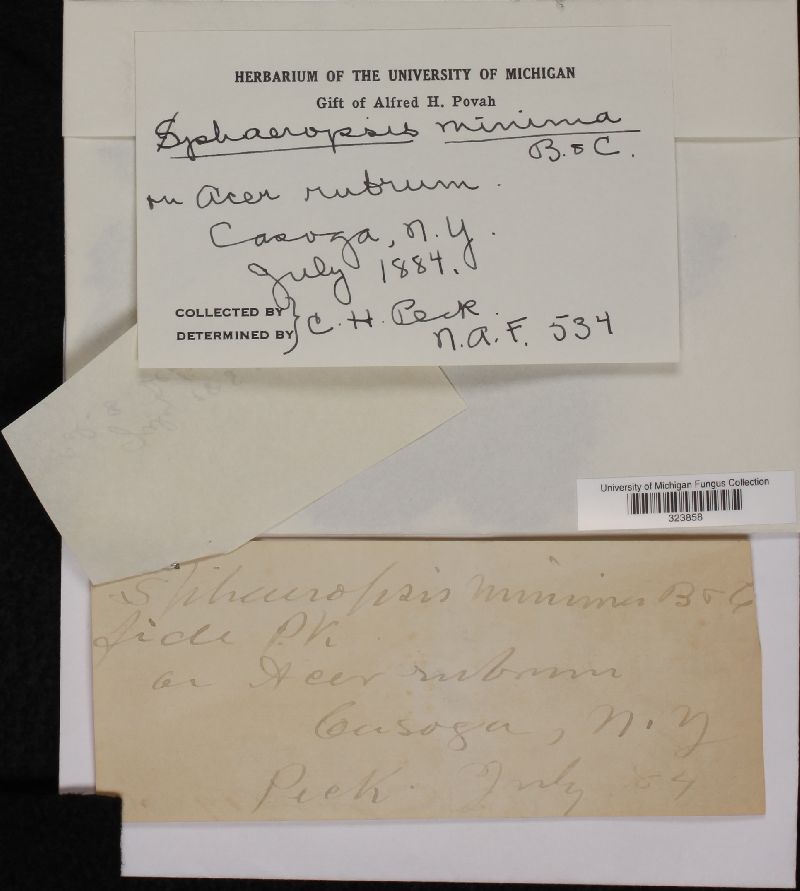 HERBARIUM OF THE UNIVERSITY OF MICHIGAN
Gift of Alfred H. Povah
Sphaeropsis minima
B. & C.
on Acer rubrum.
Casoga, N.Y.
July 1884.
COLLECTED BY
DETERMINED BY
} C. H. Peck.
N.A.F. 534
University of Michigan Fungus Collection
323858
Sphaeropsis minima B & C
fide PK
on Acer rubrum
Casoga, N. Y
Peck. July 84